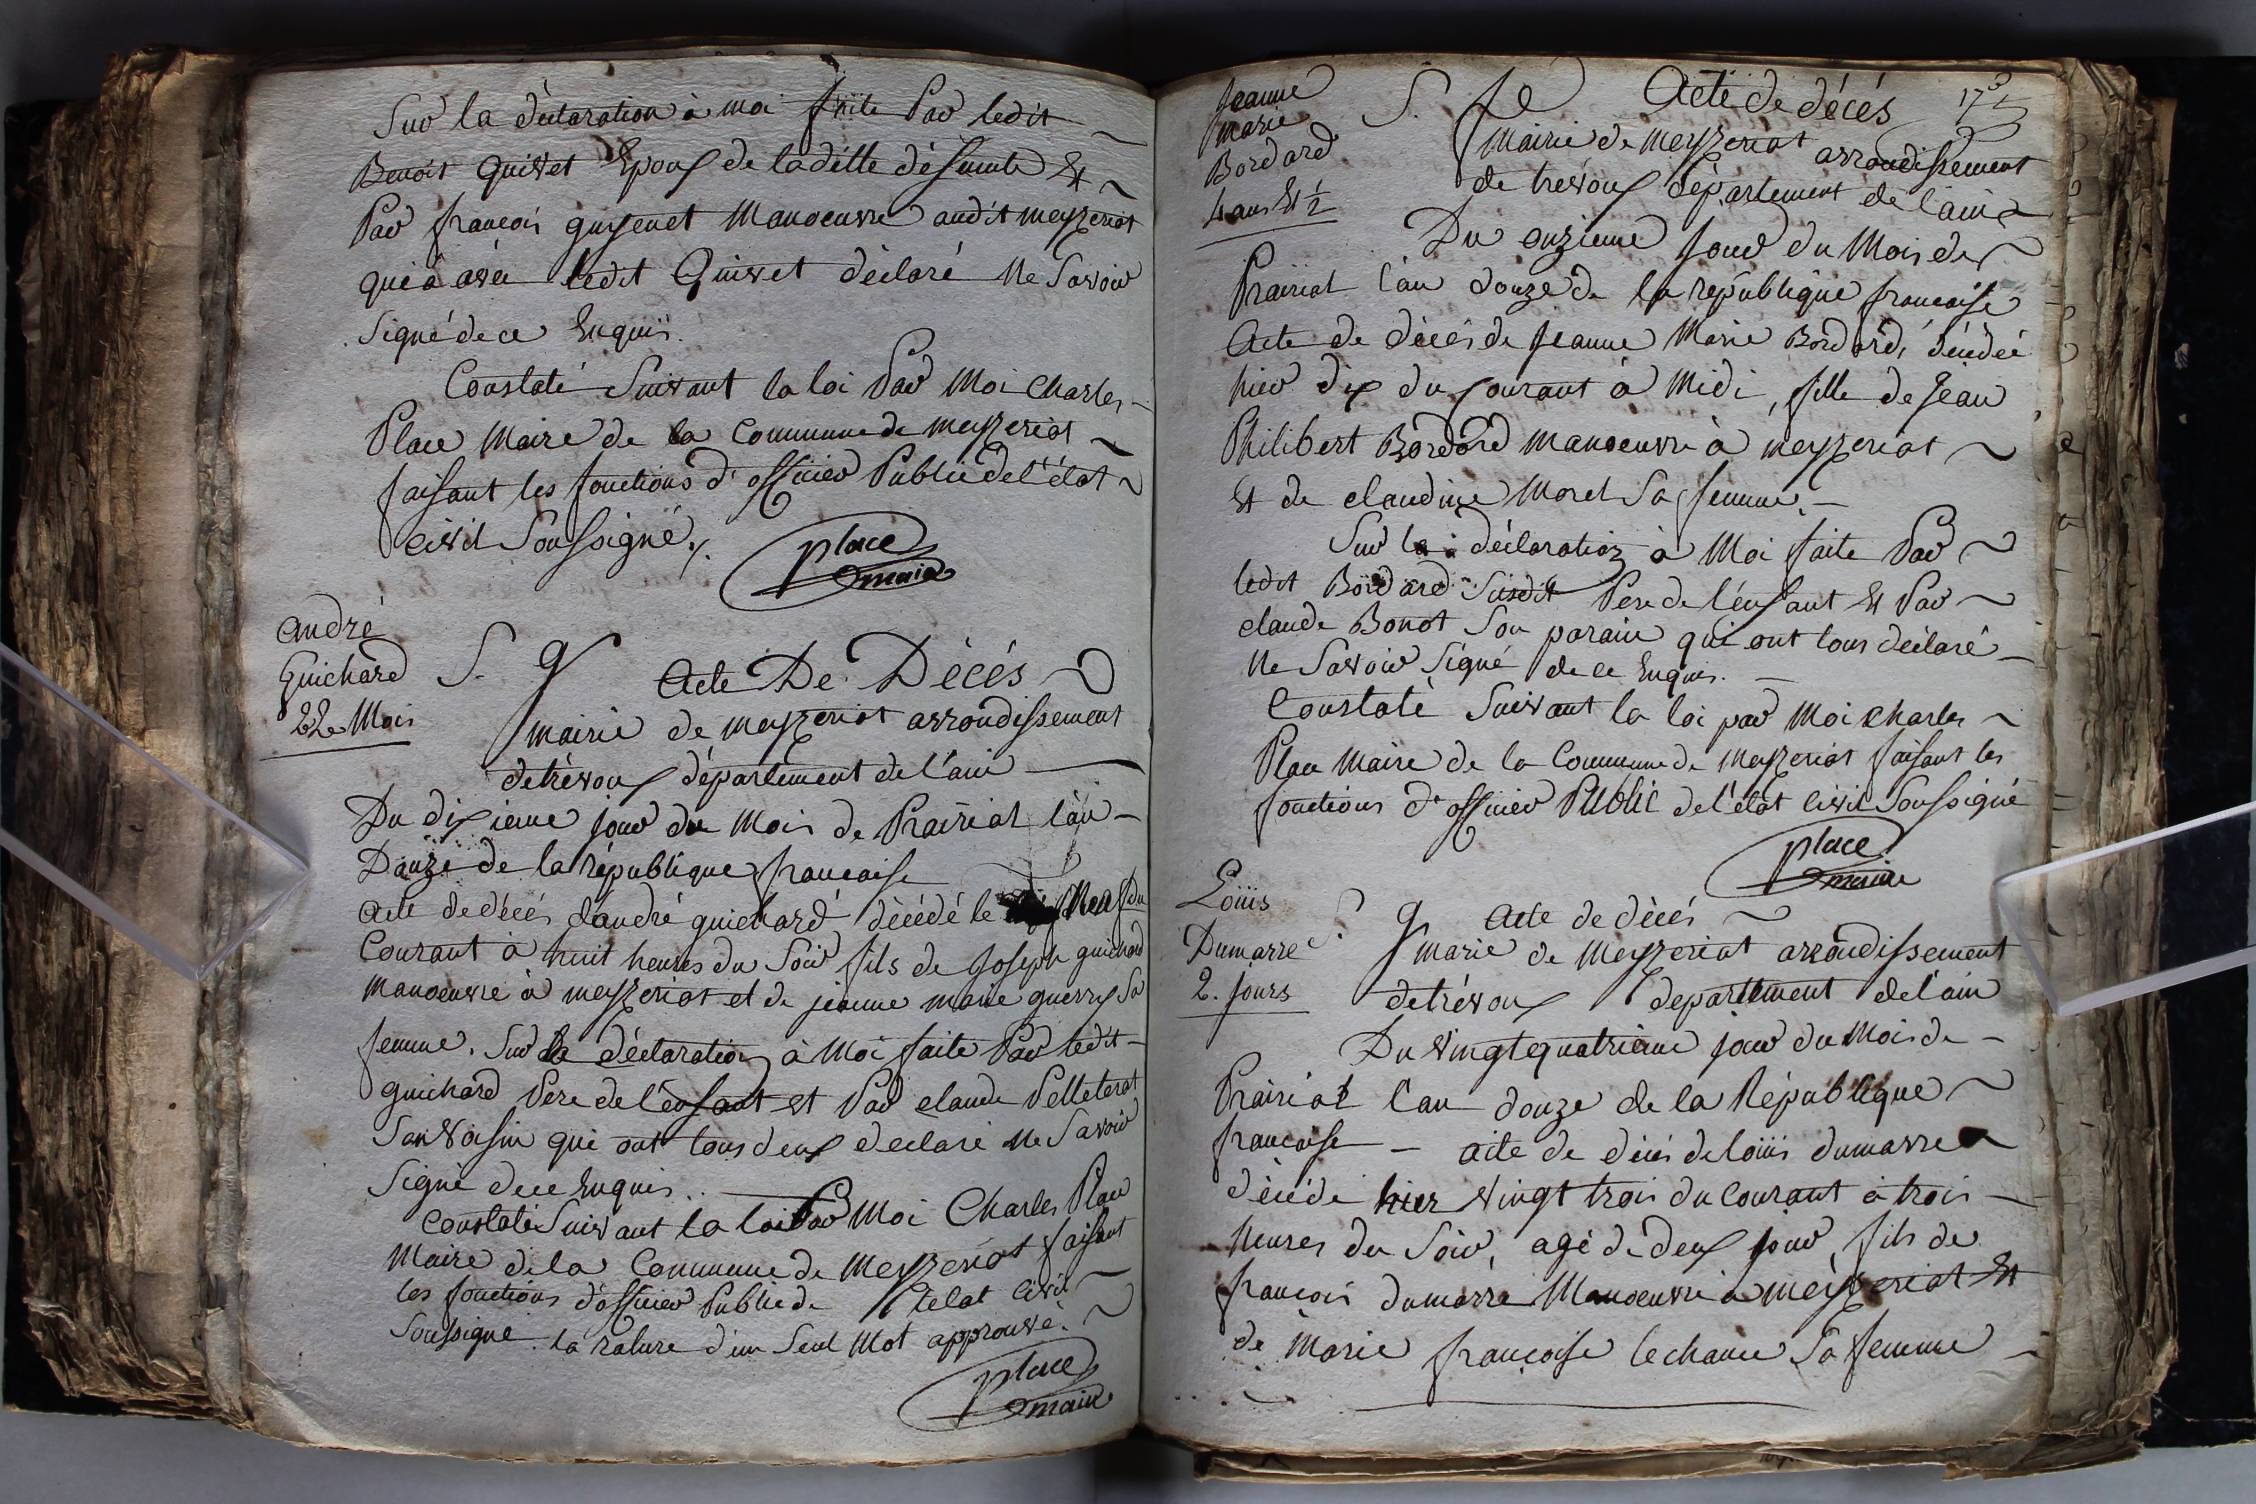 Sur la déclaration à moi faite Par ledit
Benoit Quivet Epoux de laditte défunte Et
Par françois guyenet Manoeuvre audit meyzeriat
qui a avec ledit Quivet déclaré Ne Savoir
Signé de ce Enquis.
Constaté Suivant la loi Par Moi Charles
Place Maire de la Commune de meyzeriat
faisant les fonctions d'officier Public de l'état
Civil Soussigné.
Place
maire
andré
Guichard
22 Mois
S. g
Acte De Décés
mairie de meyzeriat arrondissement
de trévoux département de l'ain
Du dixieme jour du Mois de Prairial l'an
Douze de la république francaise
acte de décés d'andré guichard décédé le Neuf du
Courant à huit heures du Soir fils de Joseph guichard
manoeuvre à meyzeriat et de jeanne marie guerry Sa
femme. Sur la déclaration à Moi faite Par ledit
guichard Pere de l'enfant et Par claude Pelleterat
Son Voisin qui ont tous deux declaré Ne Savoir
Signé de ce Enquis.
Constaté Suivant la loi Par Moi Charles Place
Maire de la Commune de Meyzeriat faisant
les fonctions d'officier Public de l'etat Civil
Soussigné. la rature d'un Seul Mot approuvé.
Place
maire
Jeanne
marie
Bordard
4 ans Et 1/2
S.
Acte de décés
173
mairie de meyzeriat arrondissement
de trevoux département de l'ain
Du onzieme jour du Mois de
Prairial l'an douze de la république francaise
Acte de décés de Jeanne Marie Bordard, décédée
hier dix du Courant à Midi, fille de Jean
Philibert Bordard manoeuvre à meyzeriat
Et de claudine Morel Sa femme.
Sur la déclaration à Moi faite Par
ledit Bordard Susdit Pere de l'enfant Et Par
claude Bonot Son parain qui ont tous déclaré
Ne Savoir Signé de ce Enquis.
Constaté Suivant la loi par Moi Charles
Place Maire de la Commune de Meyzeriat faisant les
fonctions d'officier Public de l'état Civil Soussigné
Place
maire
Loüis
Dumarre
2. Jours
S. g
acte de décés
marie de Meyzeriat arrondissement
de trévoux departement de l'ain
Du Vingt quatrieme jour du Mois de
Prairial l'an douze de la République
francaise — acte de décés de Loüis dumarre
décédé hier Vingt trois du Courant à trois
heures du Soir, agé de deux jour, fils de
françois dumarre Manoeuvre a meyzeriat Et
de Marie françoise lechance Sa femme